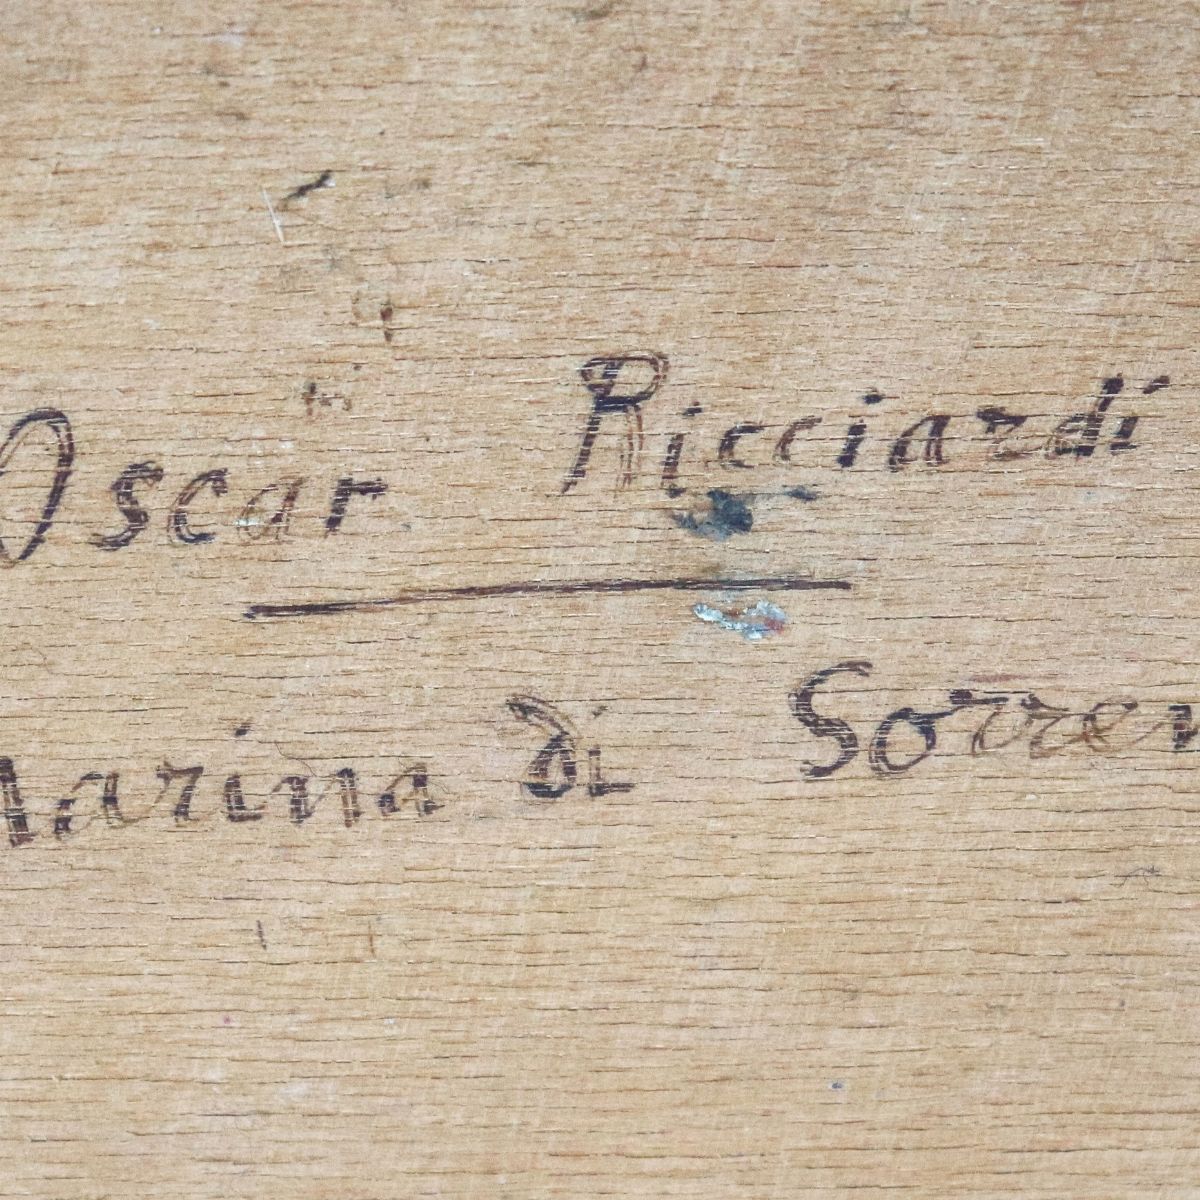 Oscar Ricciardi
Marina di Sorren